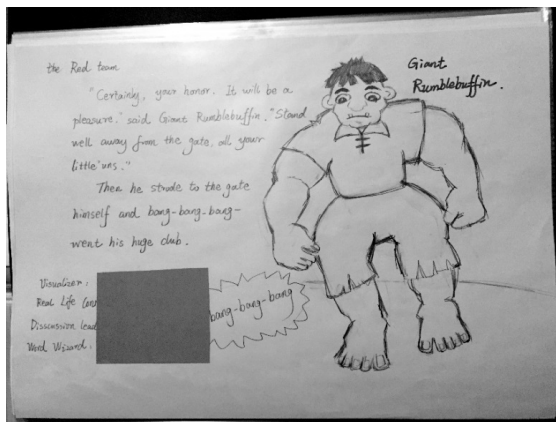 the Red team
"Certainly, your honor. It will be a
pleasure," said Giant Rumblebuffin. "Stand
well away from the gate, all your
little'uns."
Then he strode to the gate
himself and bang-bang-bang-
went his huge club.
Giant
Rumblebuffin.
Visualizer:
Real Life Con
Disscussion lead
Word Wizard:
bang-bang-bang